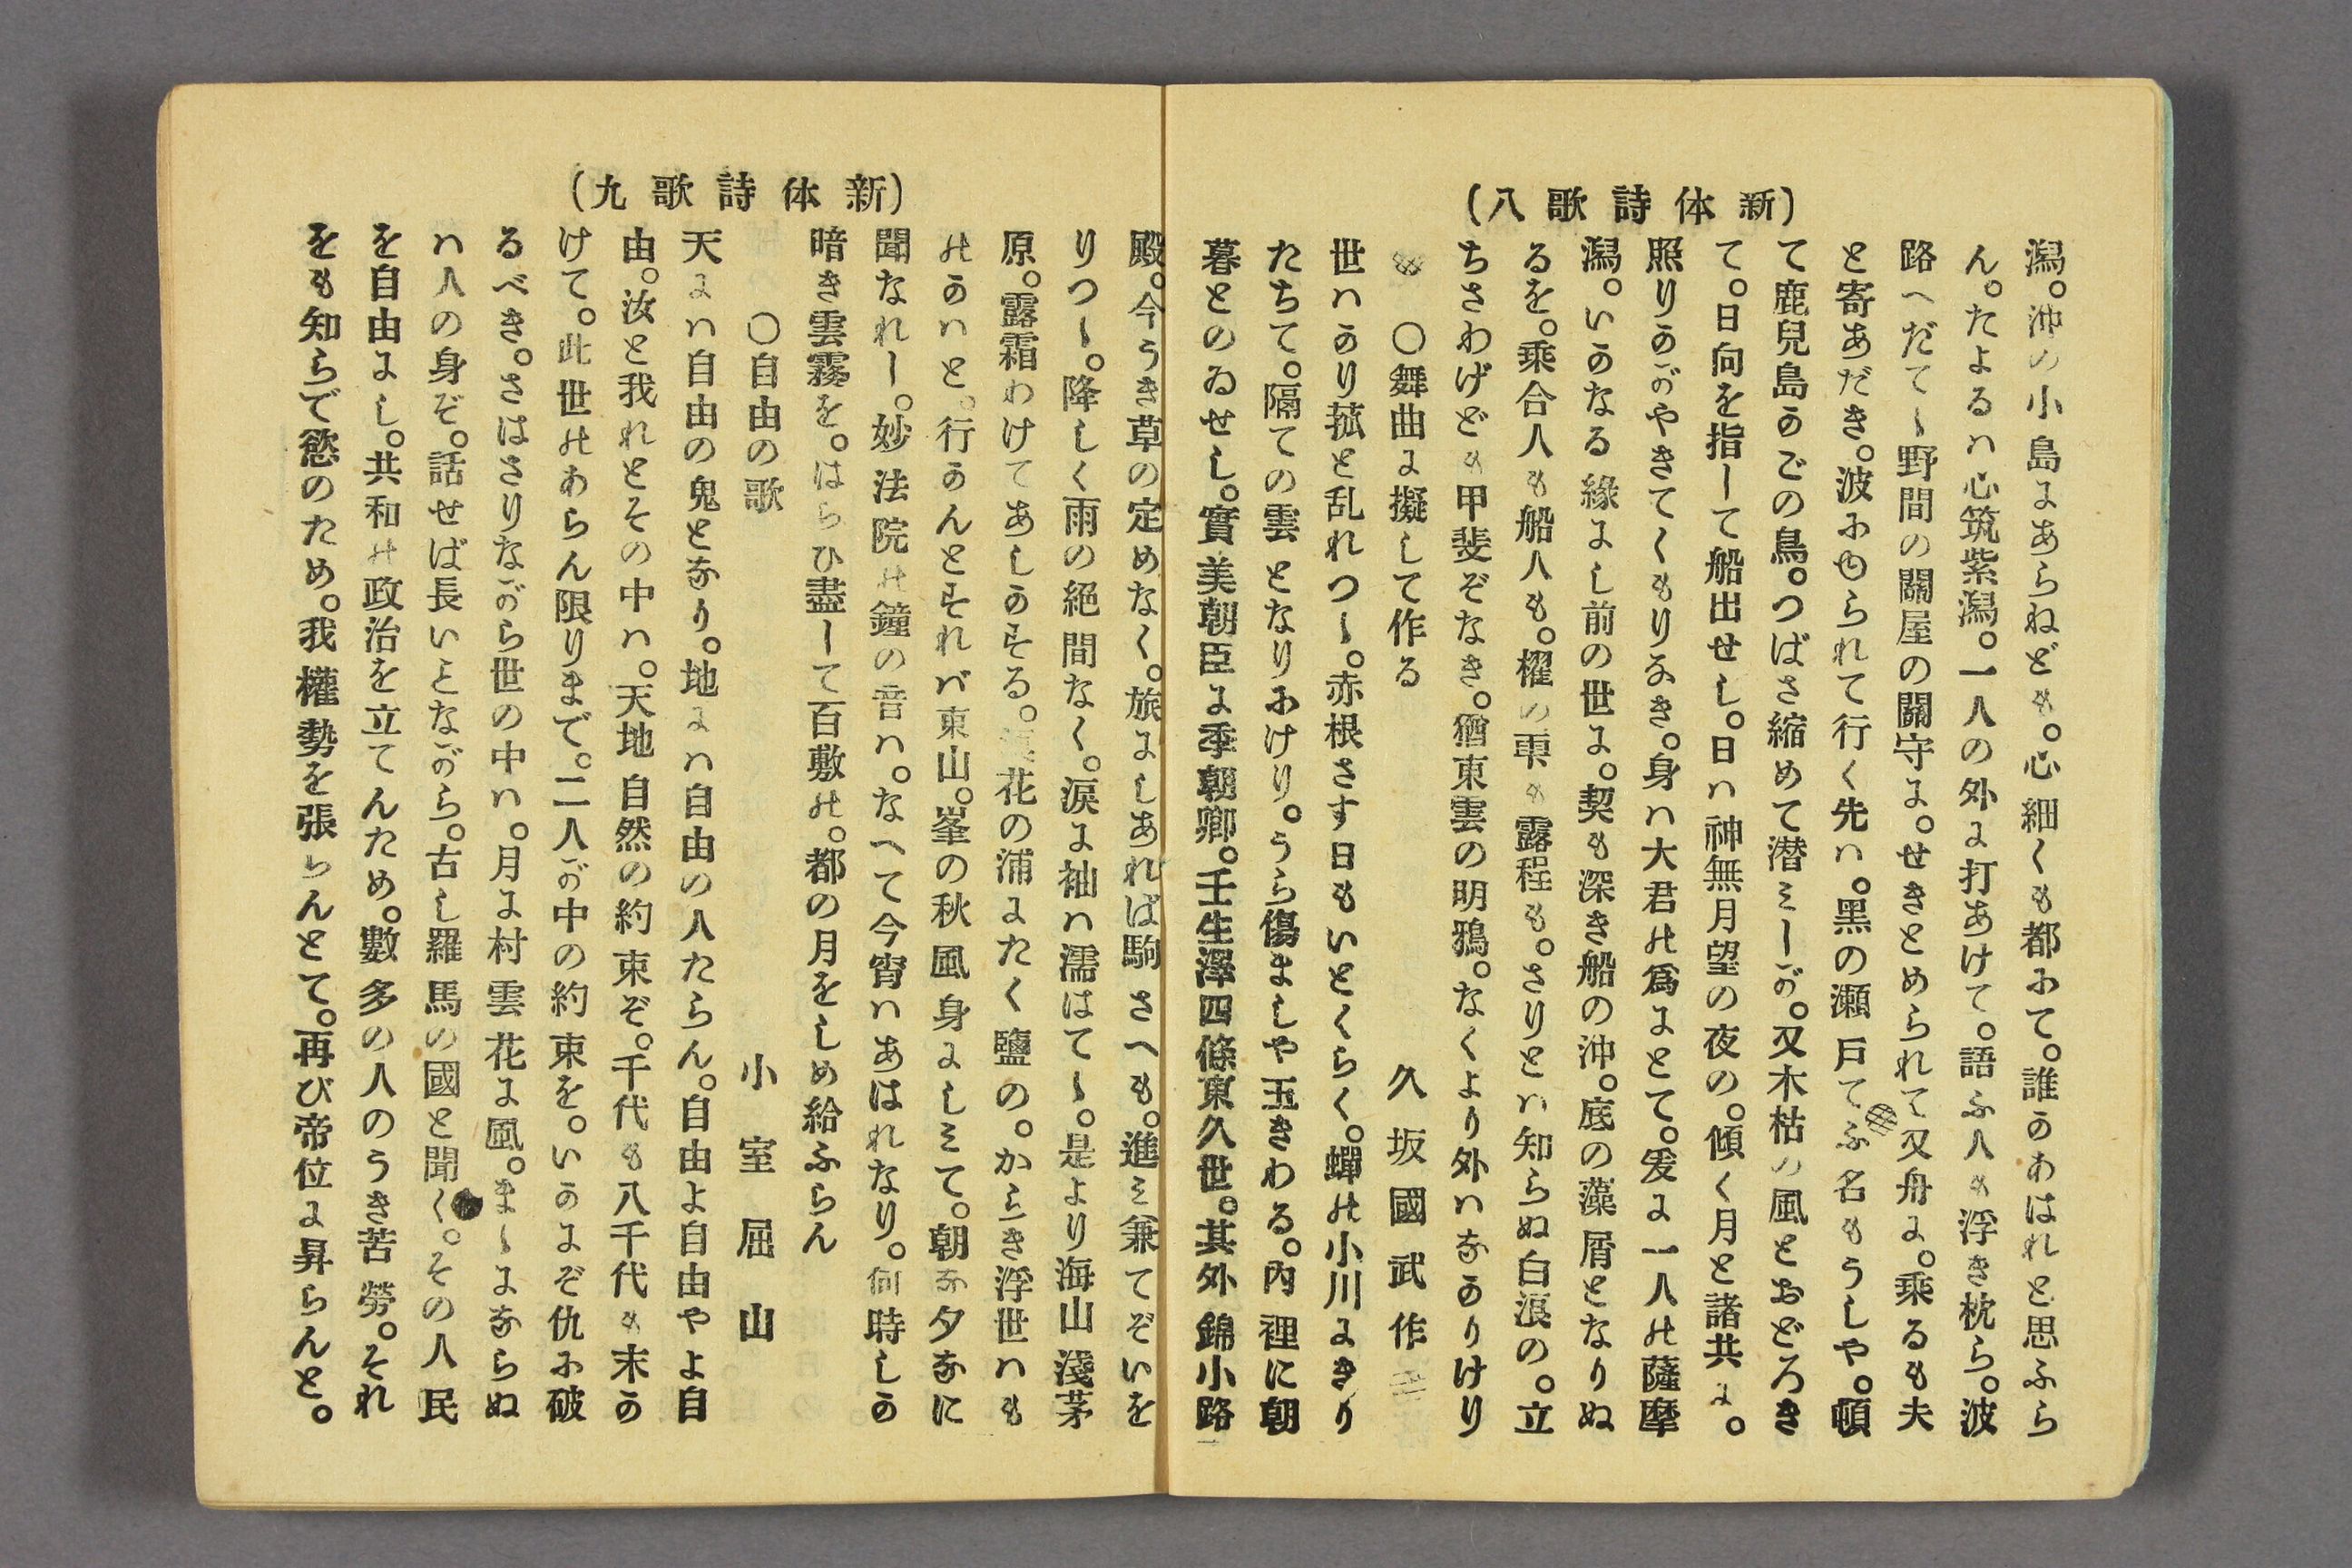 (新体詩歌八)
潟。沖の小島にあらねども。心細くも都にて。誰かあはれと思ふら
ん。たよるハ心筑紫潟。一人の外に打あけて。語ふ人も浮き枕ら。波
路へだてゝ野間の關屋の關守に。せきとめられて又舟に。乗るも夫
と寄あだき。波にゆられて行く先ハ。黒の瀬戸てふ名もうしや。頓
て鹿兒島かごの鳥。つばさ縮めて潜ミしが。又木枯の風とおどろき
て。日向を指して船出せし。日ハ神無月望の夜の。傾く月と諸共に。
照りかゞやきてくもりなき。身ハ大君の爲にとて。爰に一人の薩摩
潟。いかなる緣にし前の世に。契も深き船の沖。底の藻屑となりぬ
るを。乘合人も船人も。櫂の雫も露程も。さりとハ知らぬ白浪の。立
ちさわげども甲斐ぞなき。猶東雲の明鴉。なくより外ハなかりけり
〇舞曲に擬して作る 久坂國武作
世ハかり菰と乱れつゝ。赤根さす日もいとくらく。蟬の小川にきり
たちて。隔ての雲となりにけり。うら傷ましや玉きわる。内裡に朝
暮とのゐせし。實美朝臣に季朝卿。壬生澤四條東久世。其外錦小路
(新体詩歌九)
殿。今うき草の定めなく。旅にしあれば駒さへも。進ミ兼てぞいを
りつゝ。降しく雨の絶間なく。涙に袖ハ濡はてゝ。是より海山淺茅
原。露霜わけてあしかぞる。浪花の浦にたく鹽の。からき浮世ハも
のかハと。行かんとぞれバ東山。峯の秋風身にしミて。朝な夕なに
聞なれし。妙法院の鐘の音ハ。なへて今宵ハあはれなり。何時しか
暗き雲霧を。はらひ盡して百敷の。都の月をしめ給ふらん
〇自由の歌 小室屈山
天にハ自由の鬼となり。地にハ自由の人たらん。自由よ自由やよ自
由。汝と我れとその中ハ。天地自然の約束ぞ。千代も八千代も末か
けて。此世のあらん限りまで。二人が中の約束を。いかにぞ仇に破
るべき。さはさりながら世の中ハ。月に村雲花に風。まゝにならぬ
ハ人の身ぞ。話せば長いとながら。古し羅馬の國と聞く。その人民
を自由にし。共和の政治を立てんため。數多の人のうき苦勞。それ
をも知らで慾のため。我權勢を張らんとて。再び帝位に昇らんと。